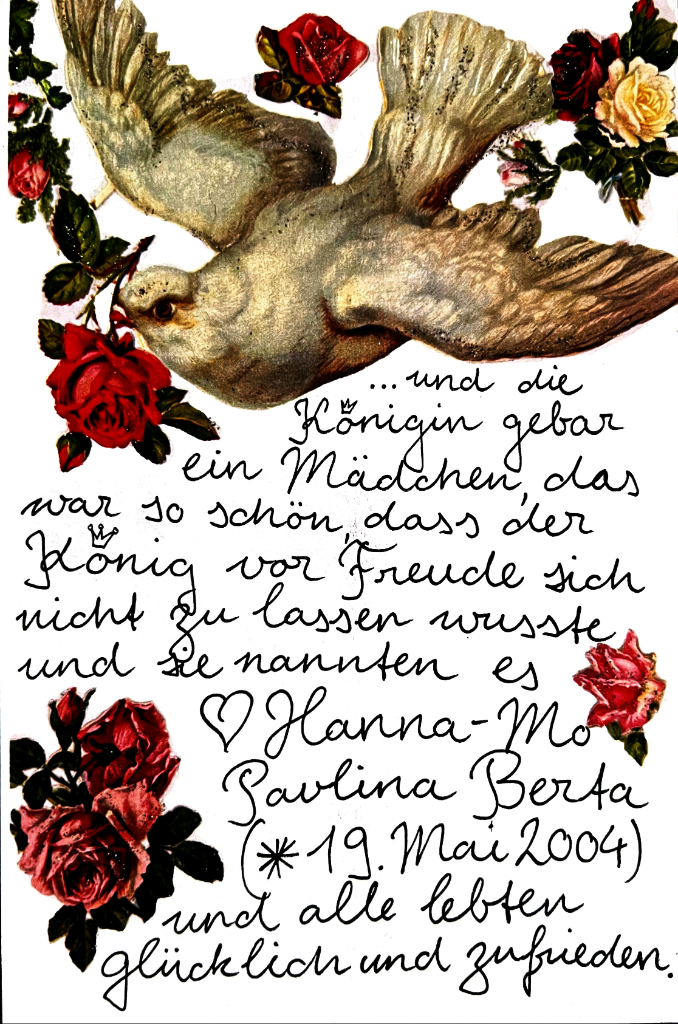 ...und die
Königin gebar
ein Mädchen, das
war so schön, dass der
König vor Freude sich
nicht zu lassen wusste
und sie nannten es
♡ Hanna-Mo
Paulina Berta
(* 19. Mai 2004)
und alle lebten
glücklich und zufrieden.